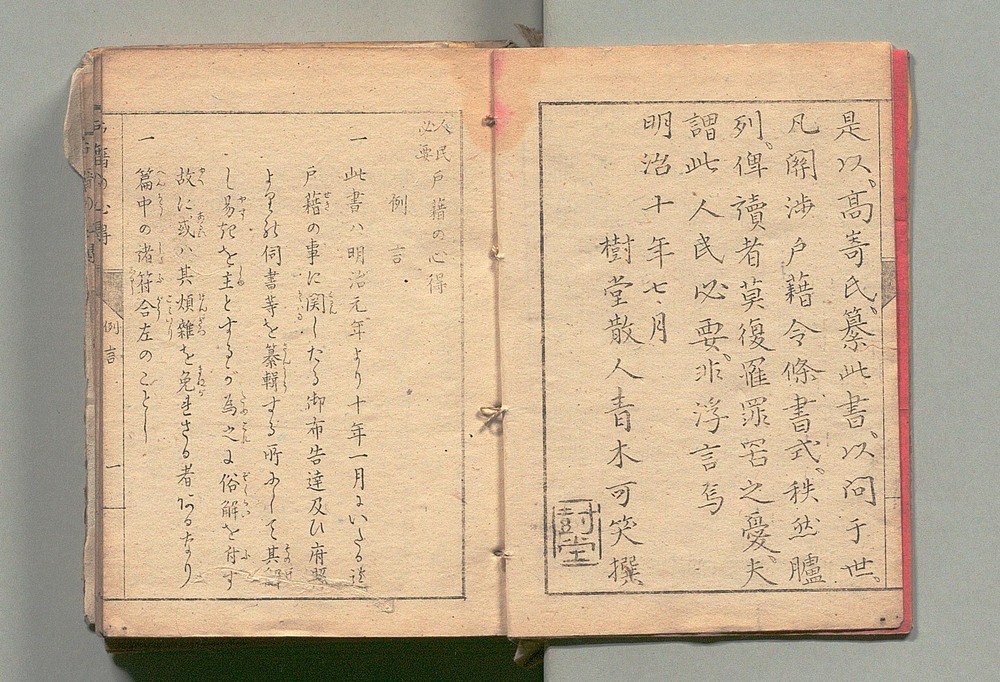 是以、高嵜氏、纂此書、以問于世、
凡関渉戸藉令條書式、秩然臚
列、俾讀者莫復罹罪罟之憂、夫
謂此人民必要、非浮言焉
明治十年七月
樹堂散人青木可笑撰
樹堂
人民必要戸籍の心得
例言
一 此書ハ明治元年より十年一月にいたる迄
戸籍の事に関したる御布告達及ひ府縣
よりの伺書等を纂輯する所にして其解
し易きを主とするか為之に俗解を付す
故に或ハ其煩雑を免れさる者あるなり
一 篇中の諸符合左のことし
例言
一